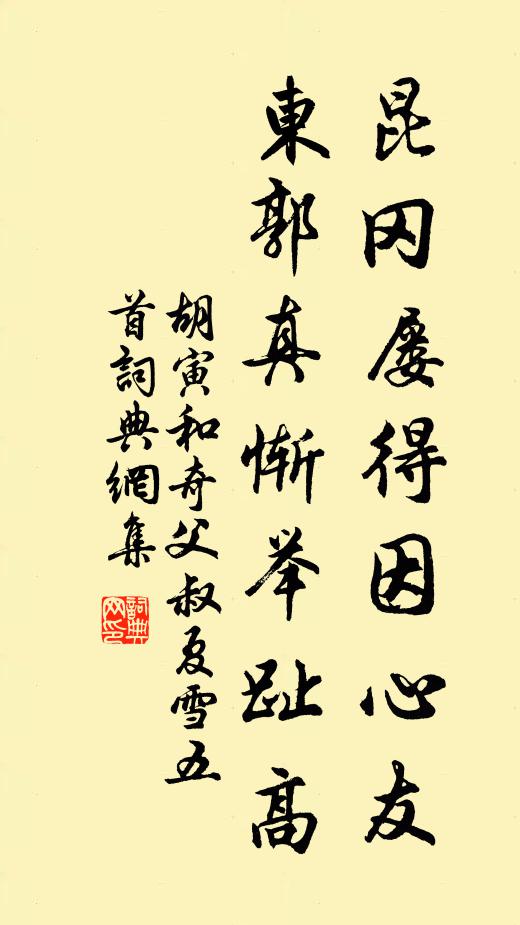 昆冈屡得因心友
東郭真惭举趾高
胡寅和奇父叔夏雪五
首詞典網集
詞典网印